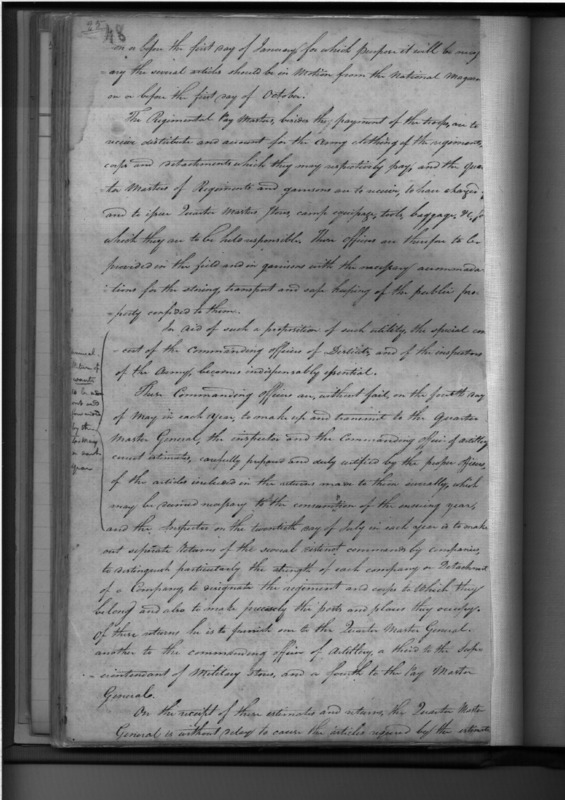 48
on or before the first day of January, for which purpose it will be necess-
ary the several articles should be in Motion from the National Magazine
on or before the first day of October.
The Regimental Pay Masters, besides the payment of the troops, are to
receive distribute and account for the Army clothing of the regiments
corps and detachments which they may respectively pay, and the Quar-
ter Masters of Regiments and garrisons are to receive, to have charge,
and to issue Quarter Masters Stores, camp equipage, tools, baggage, &c, for
which they are to be held responsible. These officers are therefore to be
provided in the field and in garrisons with the necessary accommoda-
tions for the storing, transport and safe keeping of the public pro-
perty confided to them.
In aid of such a proposition of such utility, the special con-
cert of the Commanding officers of Districts, and of the inspectors
of the Army, becomes indispensably essential.
annual
Return of
wants
to be
and
by the
4th May
in each
year
These Commanding officers are, without fail, on the fourth day
of May in each year, to make up and transmit to the Quarter
Master General, the inspector and the Commanding officer of artillery
correct estimates, carefully prepared and duly certified by the proper officers,
of the articles included in the returns made to them severally, which
may be deemed necessary to the consumption of the ensuing year,
and the Inspector on the twentieth day of July in each year is to make
out separate Returns of the several distinct commands by companies,
to distinguish particularly the strength of each company or Detachment
of a Company, to designate the regiment and corps to Which they
belong and also to make precisely the posts and places they occupy.
Of these returns he is to furnish one to the Quarter Master General
another to the commanding officer of Artillery, a third to the Supe-
rintendant of Military Stores, and a fourth to the Pay Master
General.
On the receipt of these estimates and returns, the Quarter Master
General is without delay to cause the articles required by the estimate